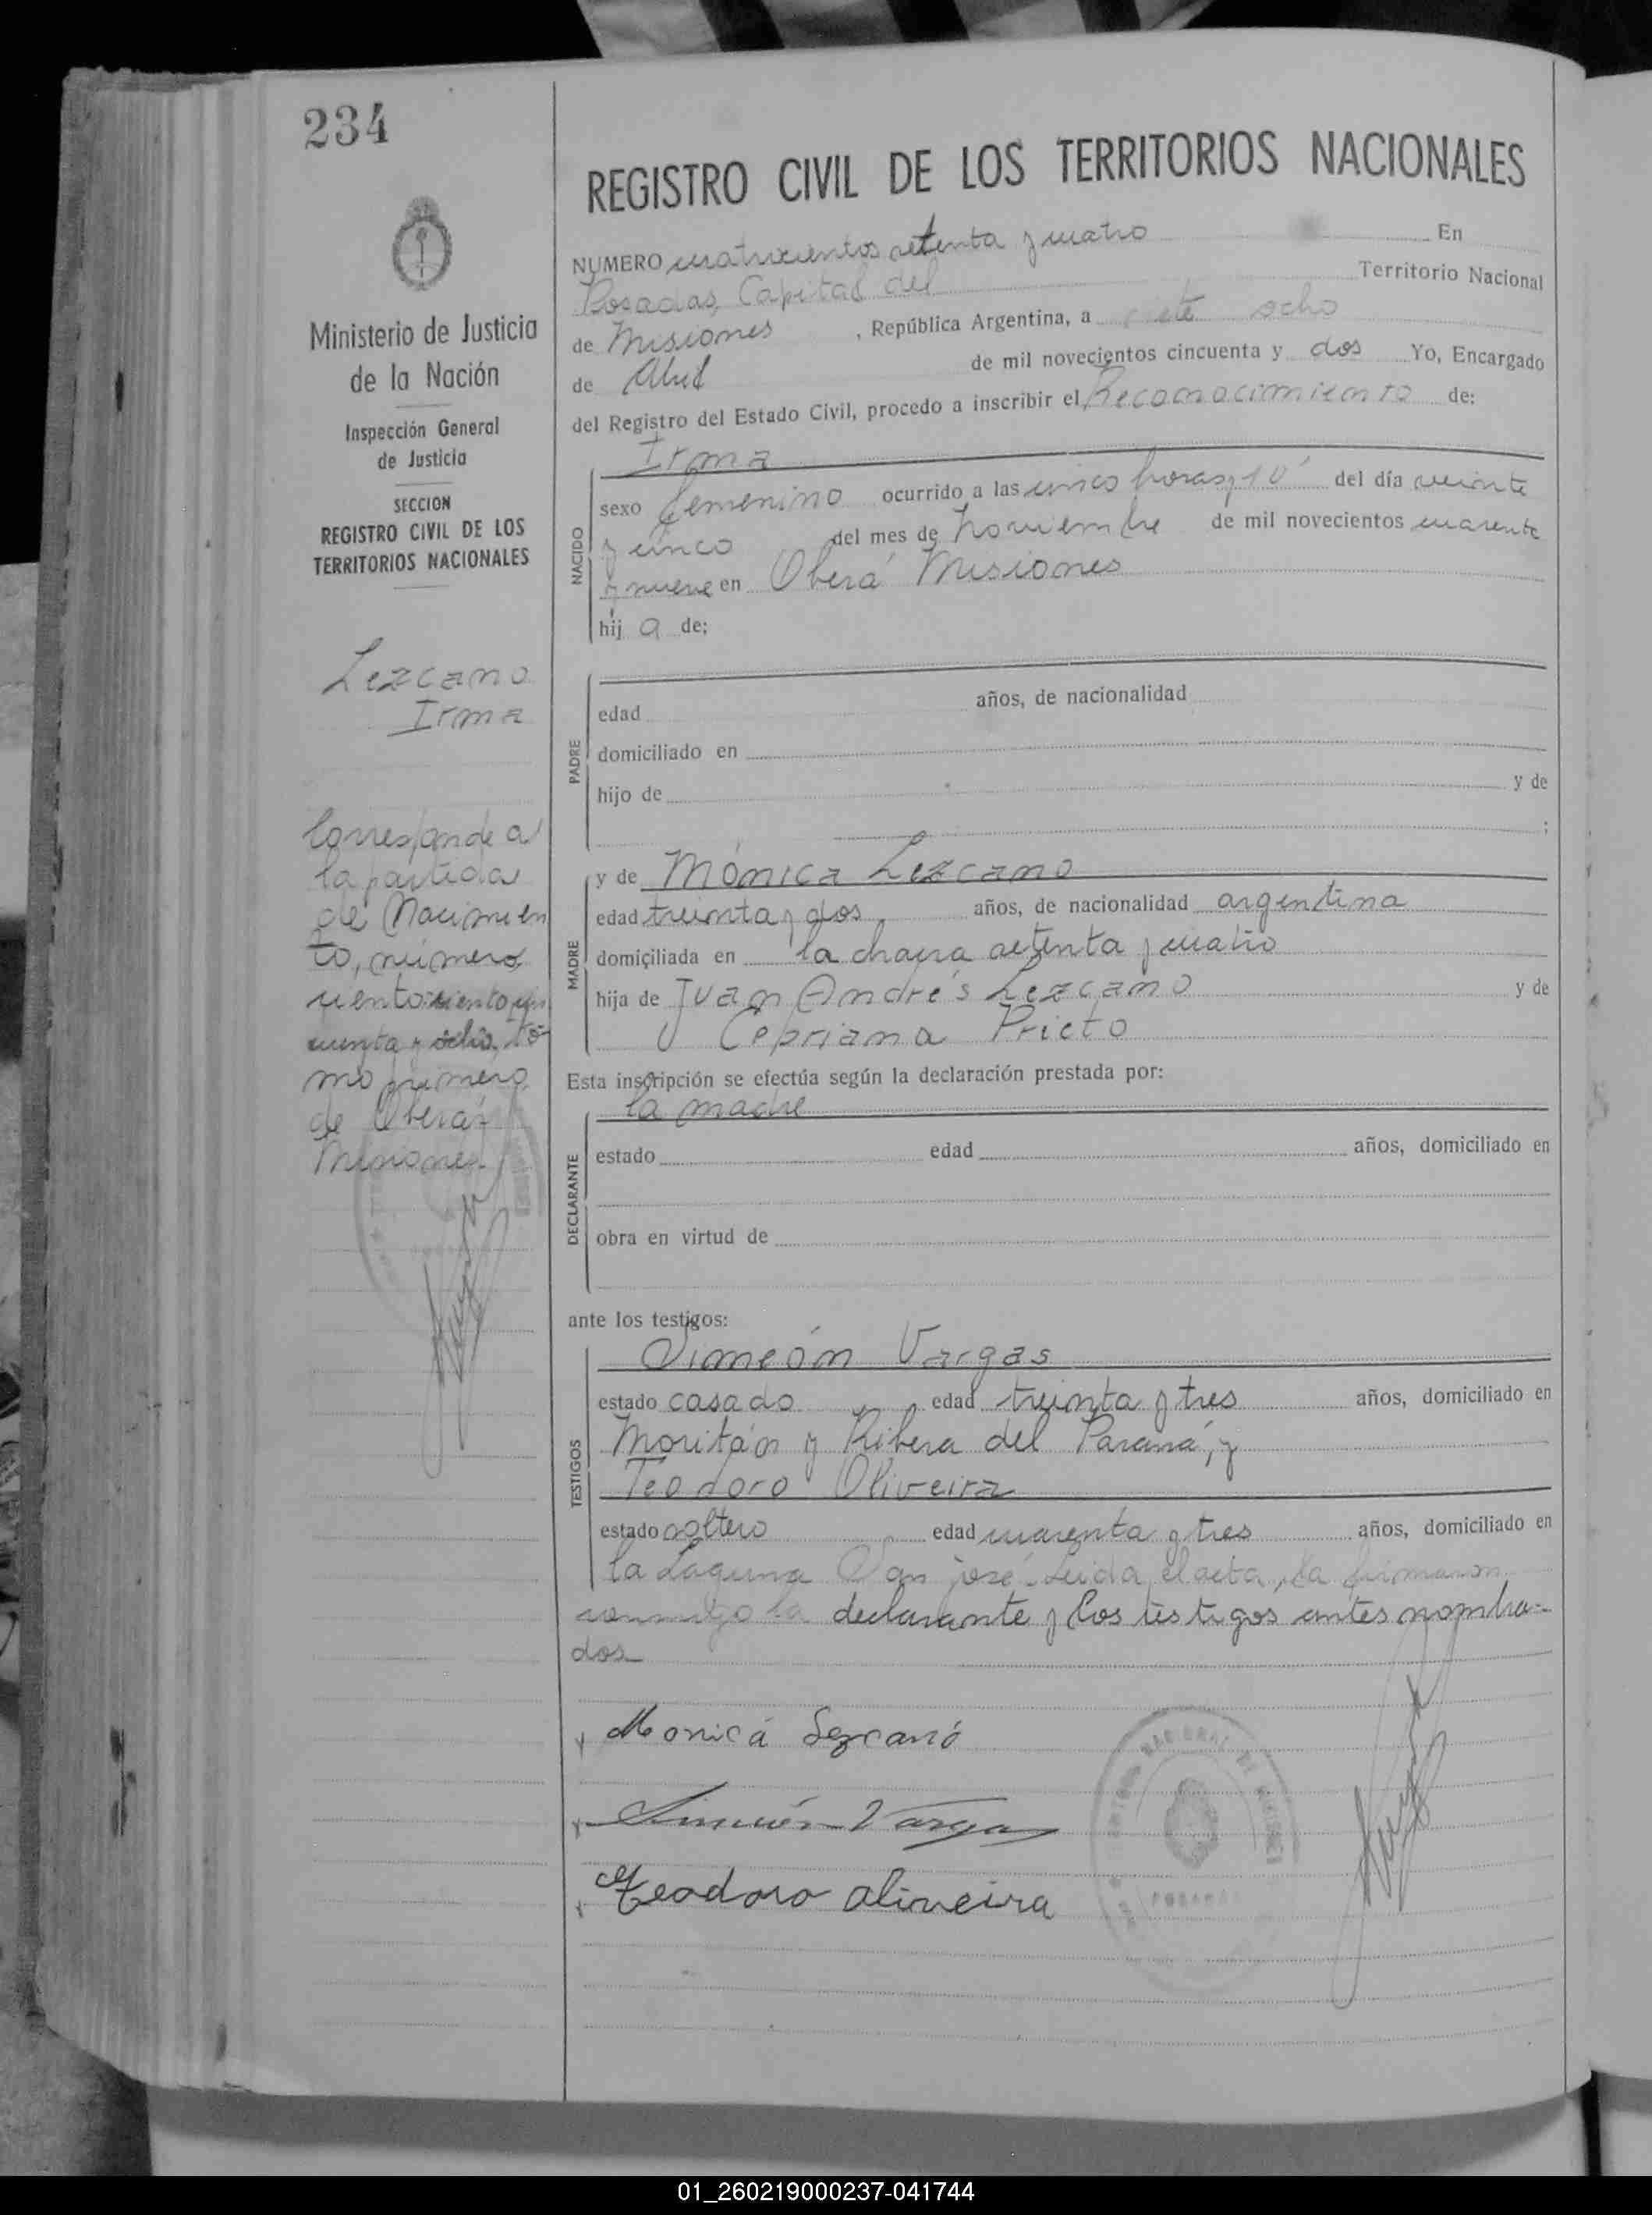 234
REGISTRO CIVIL DE LOS TERRITORIOS NACIONALES
NUMERO cuatrocientos setenta y cuatro En
Posadas, Capital del Territorio Nacional
de Misiones, República Argentina, a ocho
de Abril de mil novecientos cincuenta y dos Yo, Encargado
del Registro del Estado Civil, procedo a inscribir el Reconocimiento de:
Ministerio de Justicia
de la Nación
Inspección General
de Justicia
SECCION
REGISTRO CIVIL DE LOS
TERRITORIOS NACIONALES
Lezcano
Irma
Corresponde a
la partida
de Nacimien
to, número
ciento cin
cuenta y ocho, to-
mo primero
de Oberá-
Misiones.
NACIDO
Irma
sexo femenino ocurrido a las cinco horas y 10' del día veinte
y cinco del mes de noviembre de mil novecientos cuarenta
y nueve en Oberá Misiones
hij a de;
PADRE
edad años, de nacionalidad
domiciliado en
hijo de y de
;
MADRE
y de Mónica Lezcano
edad treinta y dos, años, de nacionalidad argentina
domiciliada en la chacra setenta y cuatro
hija de Juan Andrés Lezcano y de
Cepriana Prieto
Esta inscripción se efectúa según la declaración prestada por:
DECLARANTE
la madre
estado edad años, domiciliado en
obra en virtud de
ante los testigos:
TESTIGOS
Simeón Vargas
estado casado edad treinta y tres años, domiciliado en
Moritán y Ribera del Paraná, y
Teodoro Oliveira
estado soltero edad cuarenta y tres años, domiciliado en
la Laguna San José. Leida el acta, la firmaron
conmigo la declarante y los testigos antes nombra-
dos
Monicá Lezcanó
Simeón Vargas
Teodoro Oliveira
01_260219000237-041744